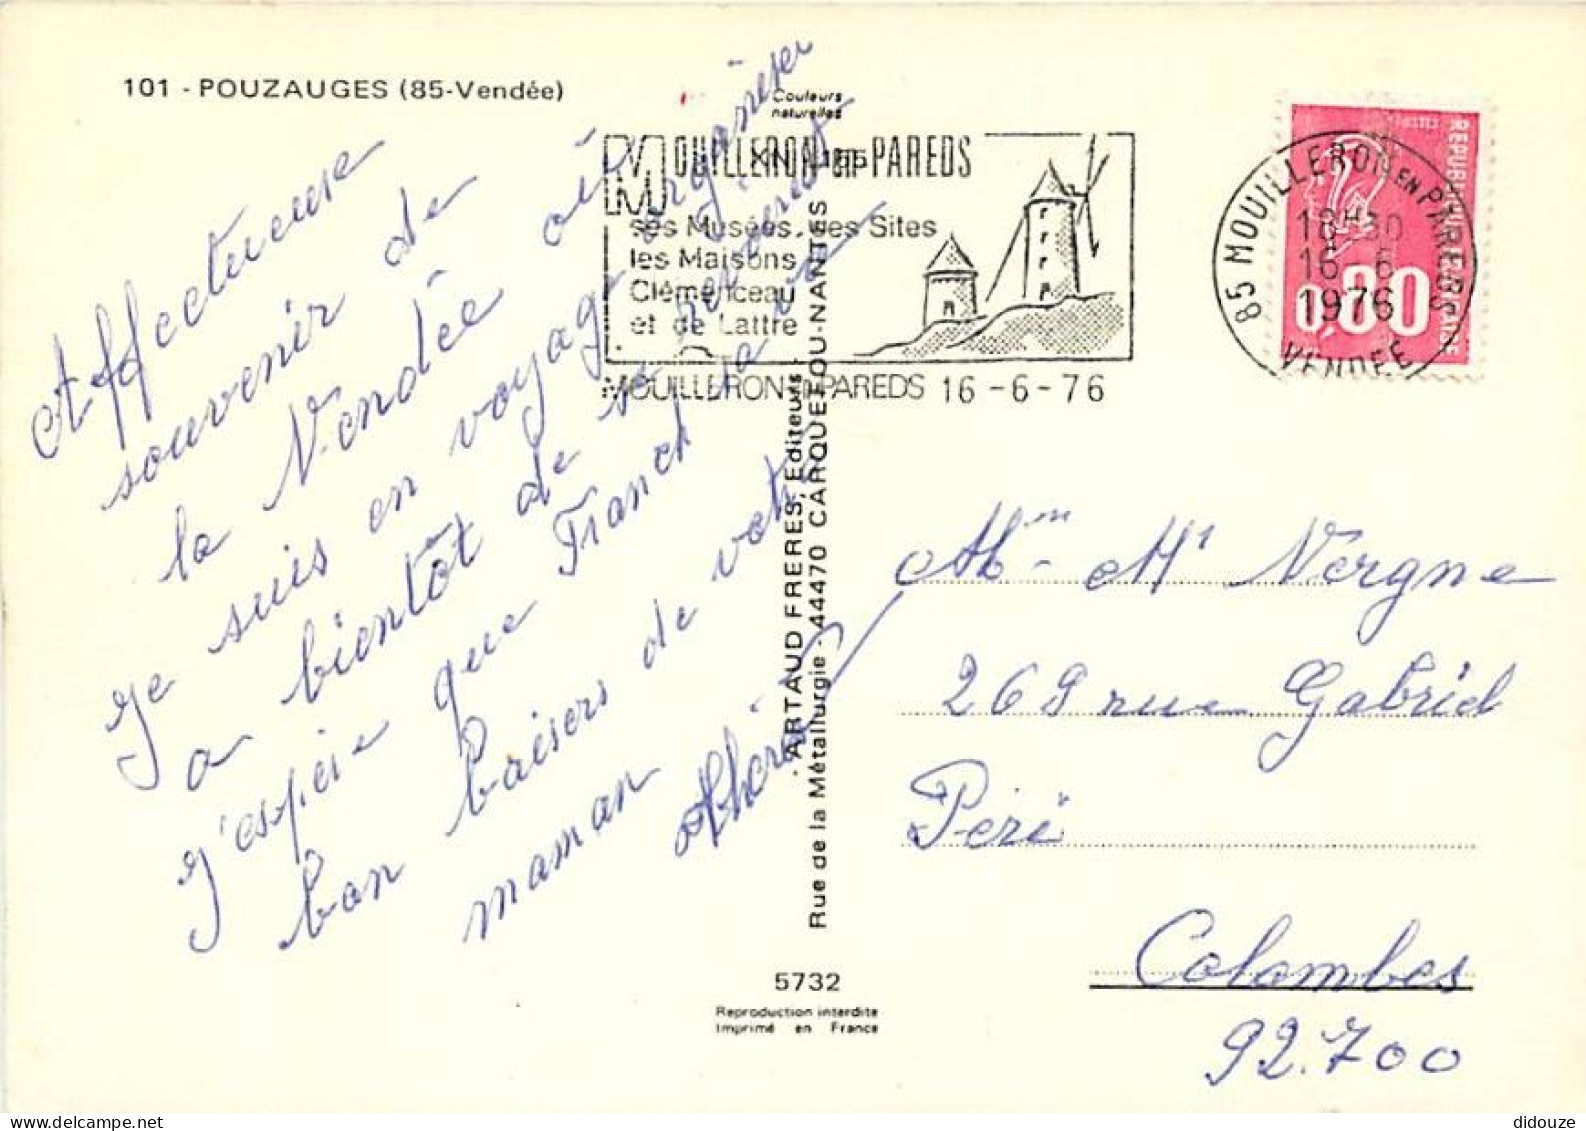 101 - POUZAUGES (85-Vendée)
Couleurs
naturelles
MOUILLERON en PAREDS
ses Musées, ses Sites
les Maisons
Clémenceau
et de Lattre
MOUILLERON en PAREDS 16-6-76
REPUBLIQUE FRANCAISE
0,80
85 MOUILLERON EN PAREDS
18H30
16 - 6
1976
VENDEE
Affectueuse
souvenir de
la Vendée où
je suis en voyage organiser
a bientôt de se revoir
j'espére que Franck va
bon baisers de votre
maman
ARTAUD FRERES, Editeurs
Rue de la Métallurgie - 44470 CARQUEFOU-NANTES
5732
Reproduction interdite
Imprimé en France
Mm - Mr Vergne
268 rue Gabriel
Péri
Colombes
92.700
didouze